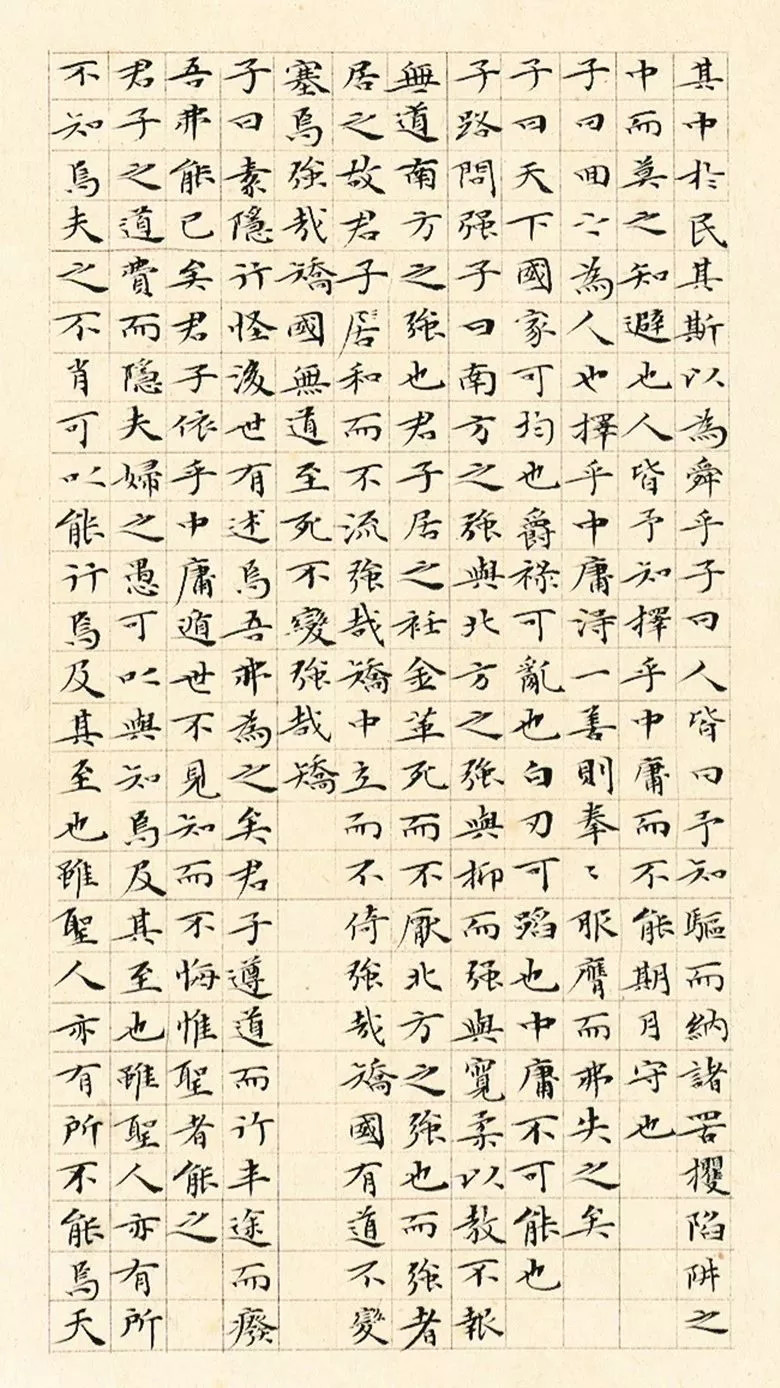 其中於民其斯以為舜乎子曰人皆曰予知驅而納諸罟擭陷阱之
中而莫之知避也人皆予知擇乎中庸而不能期月守也
子曰回之為人也擇乎中庸得一善則拳〻服膺而弗失之矣
子曰天下國家可均也爵祿可亂也白刃可蹈也中庸不可能也
子路問强子曰南方之強與北方之強與抑而强與寬柔以教不報
無道南方之強也君子居之衽金革死而不厭北方之強也而強者
居之故君子居和而不流強哉矯中立而不倚強哉矯國有道不變
塞焉強哉矯國無道至死不變強哉矯
子曰素隱行怪後世有述焉吾弗為之矣君子遵道而行半途而廢
吾弗能已矣君子依乎中庸遁世不見知而不悔惟聖者能之
君子之道費而隱夫婦之愚可以與知焉及其至也雖聖人亦有所
不知焉夫之不肖可以能行焉及其至也雖聖人亦有所不能焉天